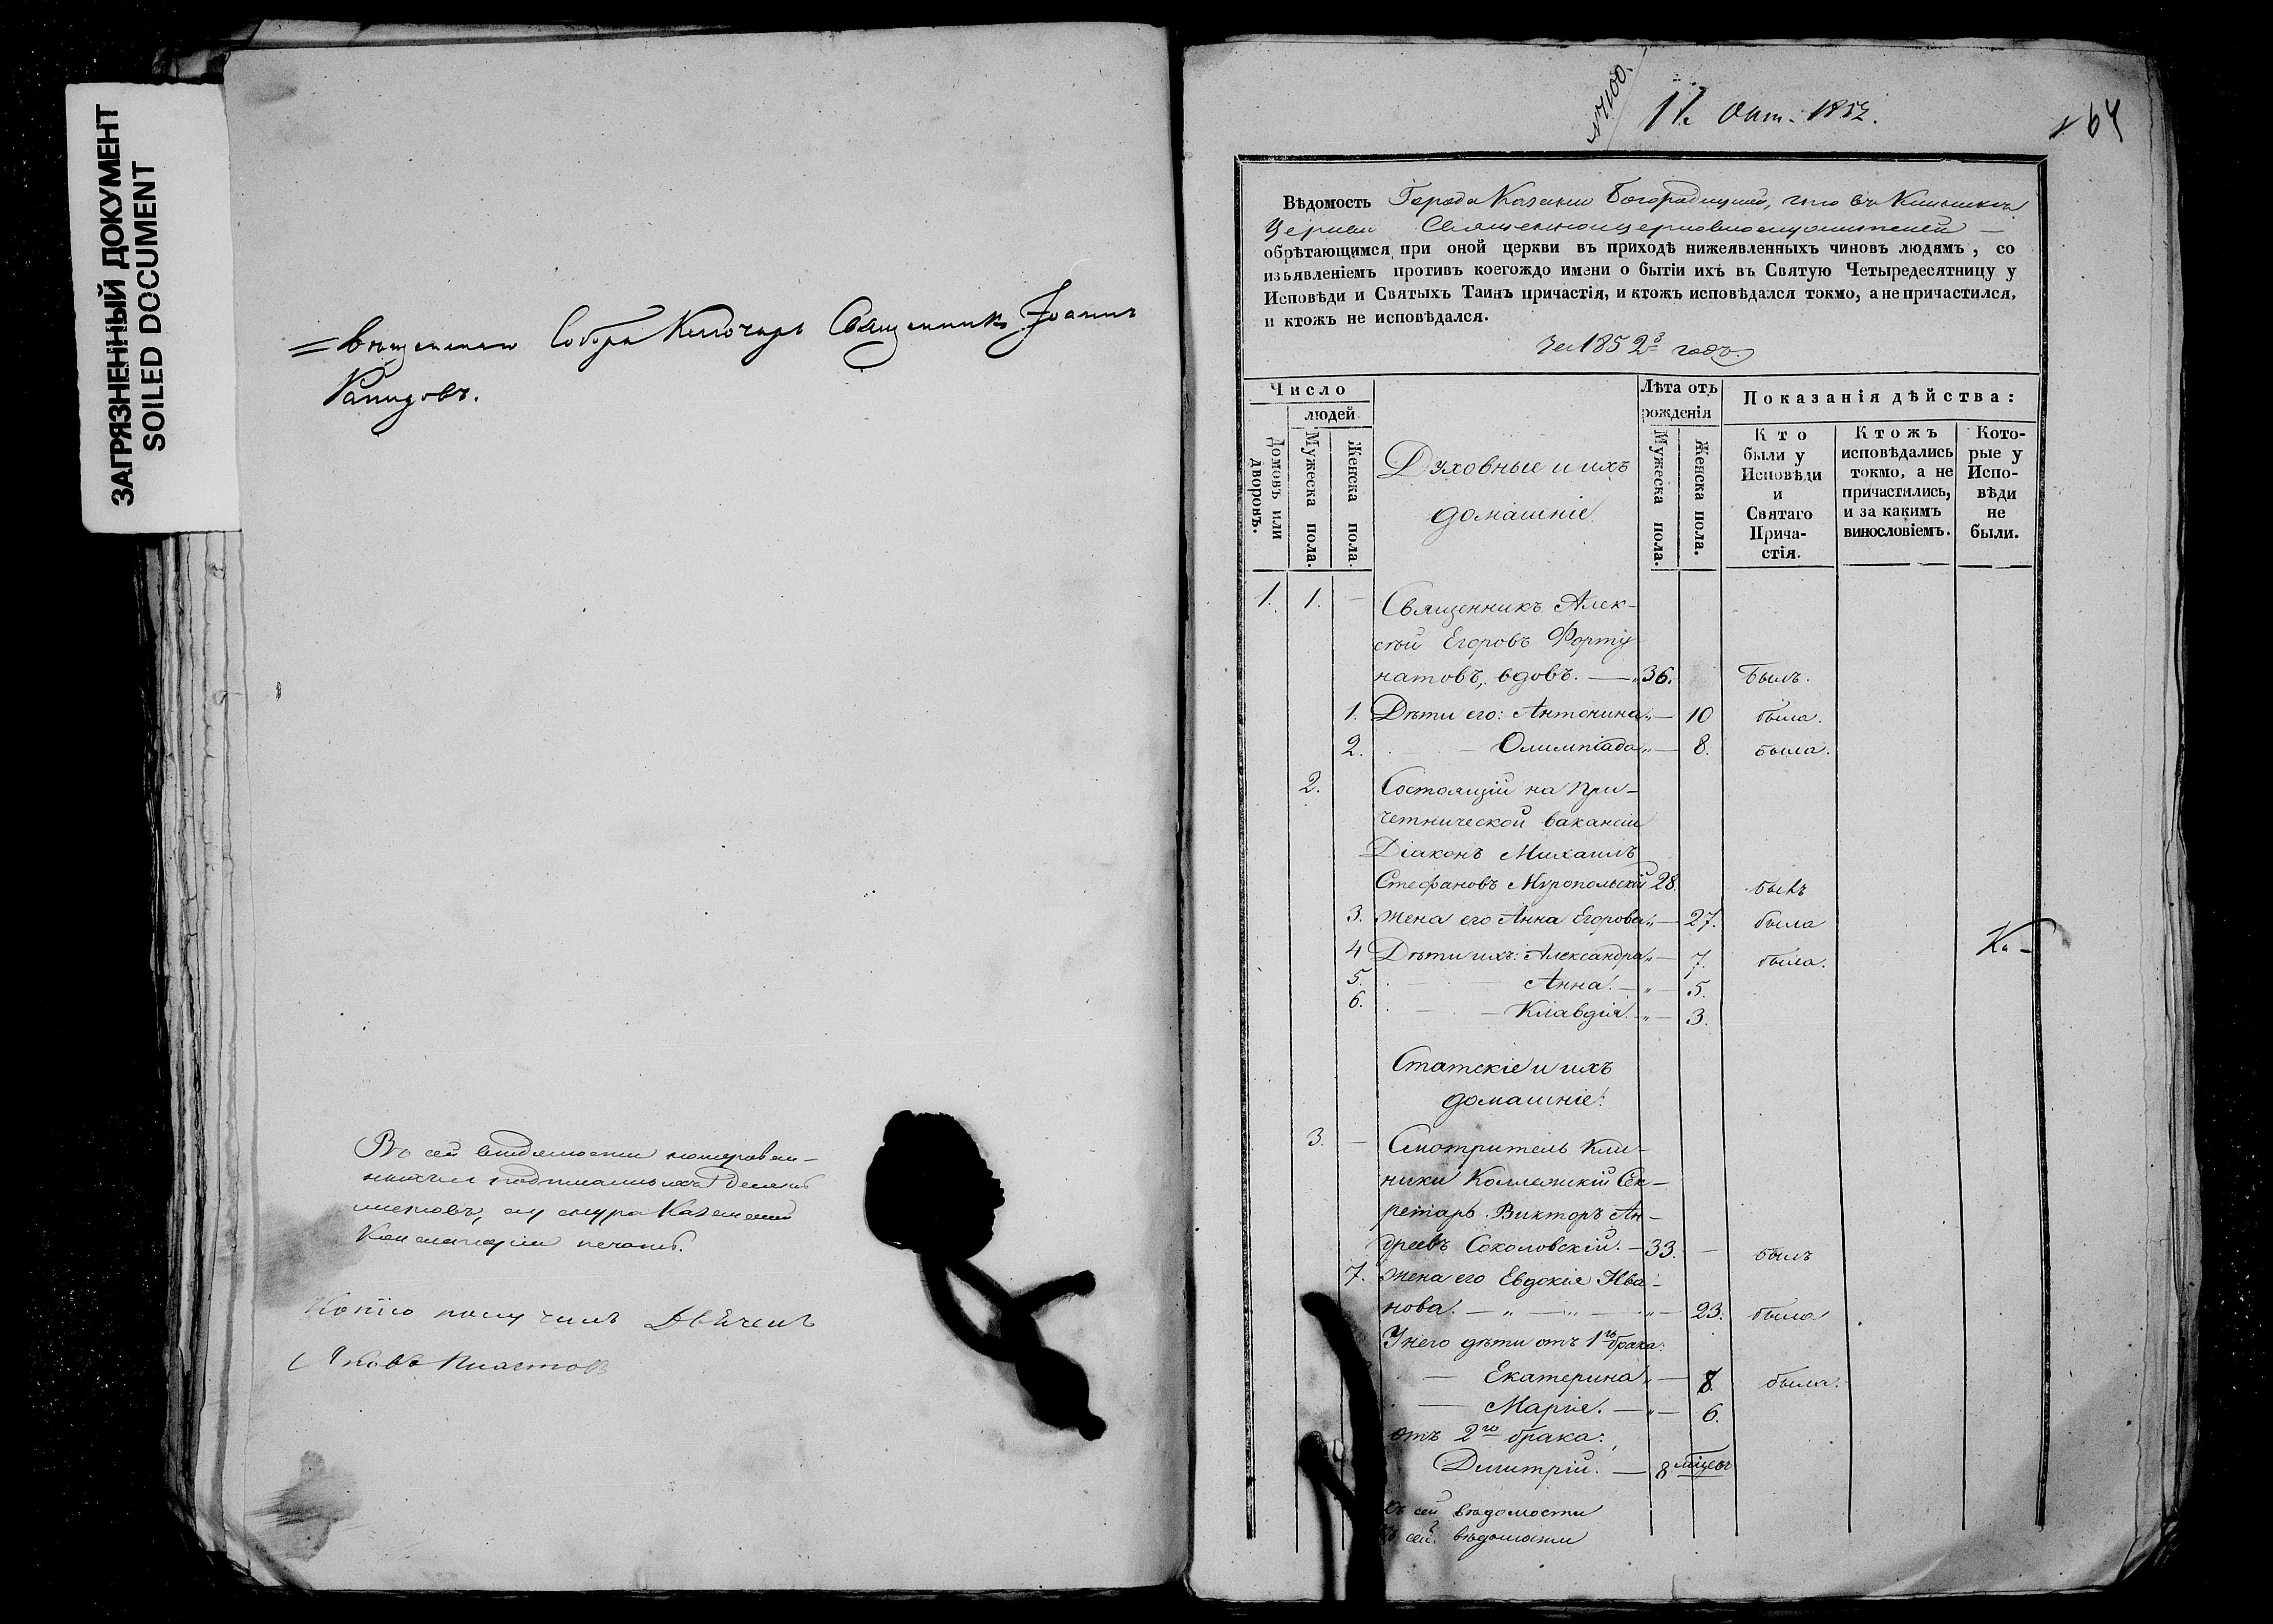 ЗАГРЯЗНЕННЫЙ ДОКУМЕНТ
SOILED DOCUMENT
Собора Ключарь Священникъ Іоаннъ
Въ сей вѣдомости
листовъ, Казенной
печать.
Копію получилъ
Яковъ Пластовъ
11 Окт. 1852.
64
Вѣдомость Города Казани Богородицкой, что въ Клиникѣ
Церкви Священноцерковнослужителей
обрѣтающимся при оной церкви въ приходѣ нижеявленныхъ чиновъ людямъ, со
изъявленіемъ противъ коегождо имени о бытіи ихъ въ Святую Четыредесятницу у
Исповѣди и Святыхъ Таинъ причастія, и ктожъ исповѣдался токмо, а не причастился,
и ктожъ не исповѣдался.
за 1852й годъ.
Число
людей
Домовъ или дворовъ.
Мужеска пола.
Женска пола.
Духовные и ихъ
домашніе.
Лѣта отъ рожденія
Мужеска пола.
Женска пола.
Показанія дѣйства:
Кто были у Исповѣди и Святаго Прича-стія.
Ктожъ исповѣдались токмо, а не причастились, и за какимъ винословіемъ.
Кото-рые у Испо-вѣди не были.
1. 1. — Священникъ Алек-
сѣй Егоровъ Форту
натовъ, вдовъ. — 36. Былъ.
1. Дѣти его: Антонина „ — 10 была.
2. — Олимпіада „ — 8. была.
2. Состоящій на при-
четнической вакансіи
Діаконъ Михаилъ
Стефановъ Миропольскій 28. былъ
3. Жена его Анна Егорова „ — 27. была
4 Дѣти ихъ: Александра „ — 7. была.
5. — Анна. — „ — 5.
6. — Клавдія. — „ — 3.
Ка-
Статскіе и ихъ
домашніе:
3. — Смотритель Кли-
ники Коллежскій Сек-
ретарь Викторъ Ан-
дреевъ Соколовскій. — 33. — былъ
7. Жена его Евдокія Ива-
нова. — „ — „ — „ — 23. была
У него дѣти отъ 1го брака:
— Екатерина „ — 8. была.
— Марія. — „ — 6.
отъ 2го брака:
Димитрій. — 8 мѣсяц
Къ сей вѣдомости
Къ сей вѣдомости